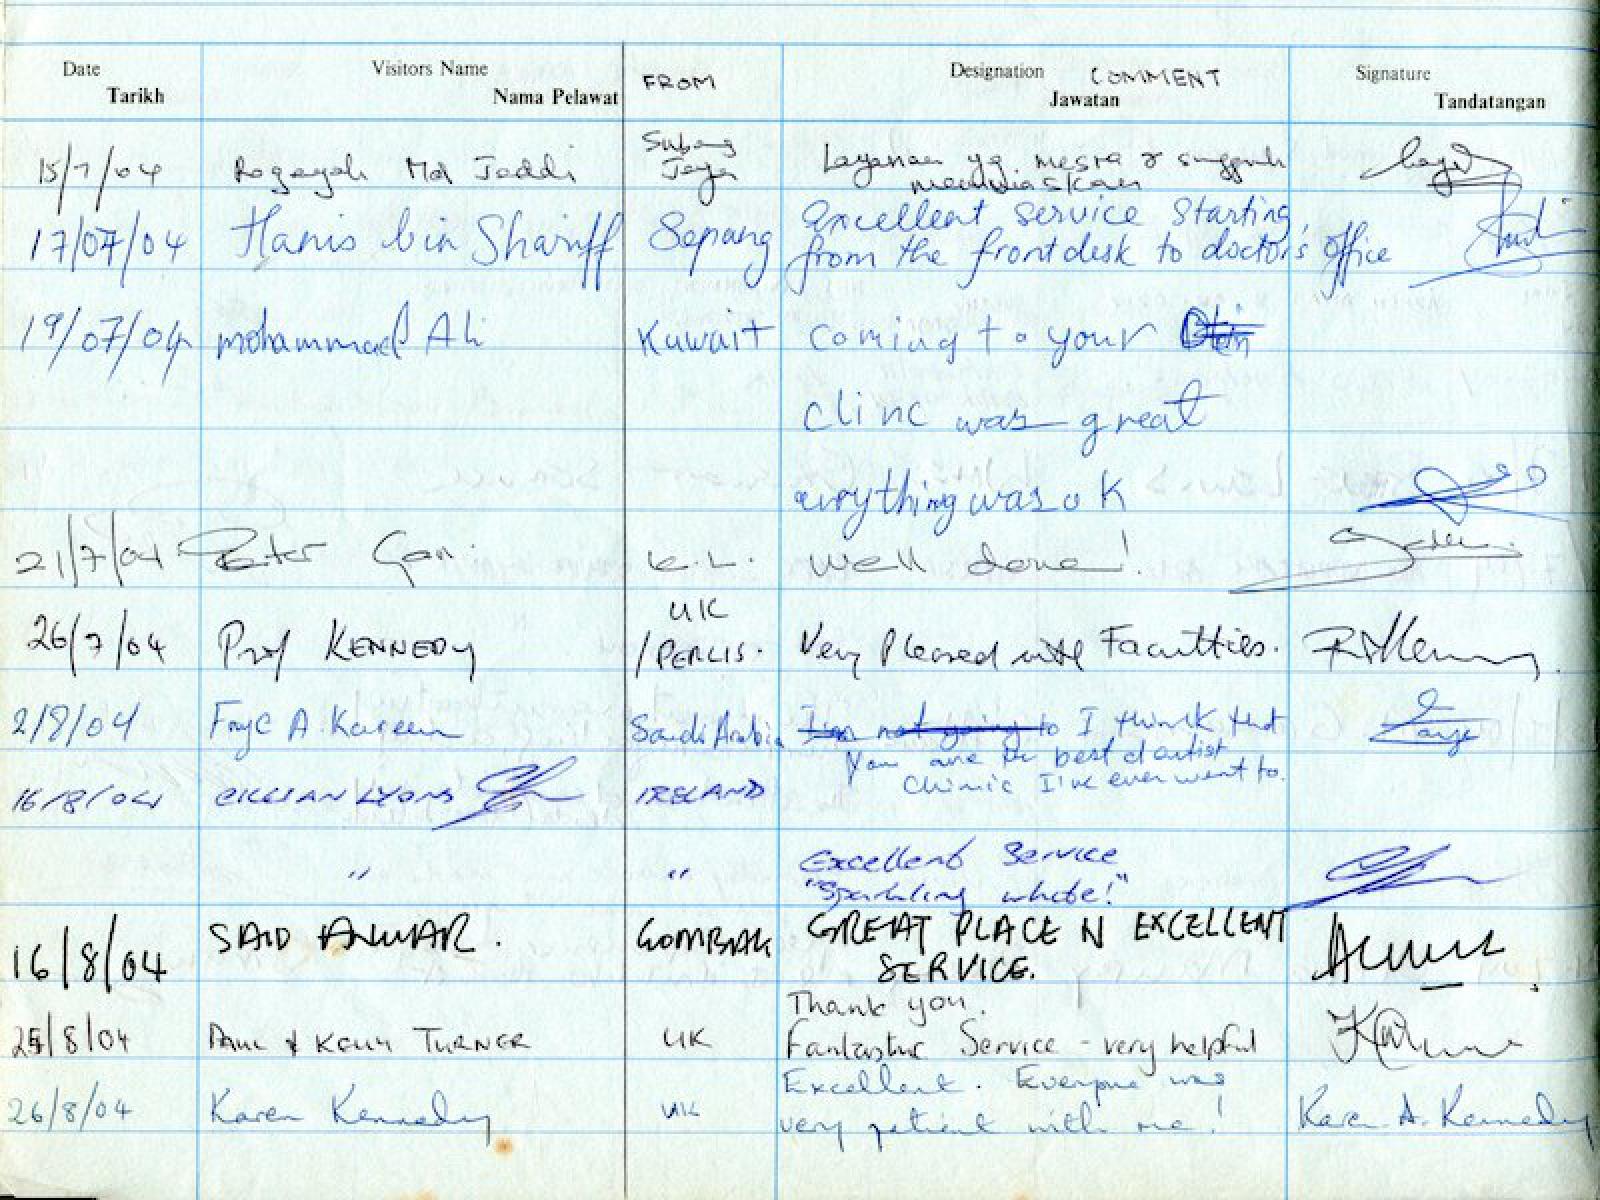 Date Visitors Name FROM Designation COMMENT Signature
Tarikh Nama Pelawat Jawatan Tandatangan
15/7/04 Rogayah Md Jaddi Subang Jaya Layanan yg mesra & sungguh
memuaskan
17/07/04 Hanis bin Shariff Sepang Excellent service starting
from the front desk to doctor's office
19/07/04 mohammad Ali Kuwait coming to your
clinc was great
evrything was ok
21/7/04 Peter Gan. K.L. Well done!
26/7/04 Prof KENNEDY UK
/PERLIS. Very Pleased with Facilities.
2/8/04 A. Kareem Saudi Arabia I'm not going to I think that
You are the best dantist
clinic I've ever went to.
16/8/04 CILLIAN LYONS IRELAND
" " Excellent Service
"Sparkling white!"
16/8/04 SAID ANUAR. GOMBAK GREAT PLACE N EXCELLENT
SERVICE.
Thank you.
25/8/04 PAUL & KELLY TURNER UK Fantastic Service - very helpful
26/8/04 Karen Kennedy UK Excellent. Everyone was
very patient with me! Karen A. Kennedy